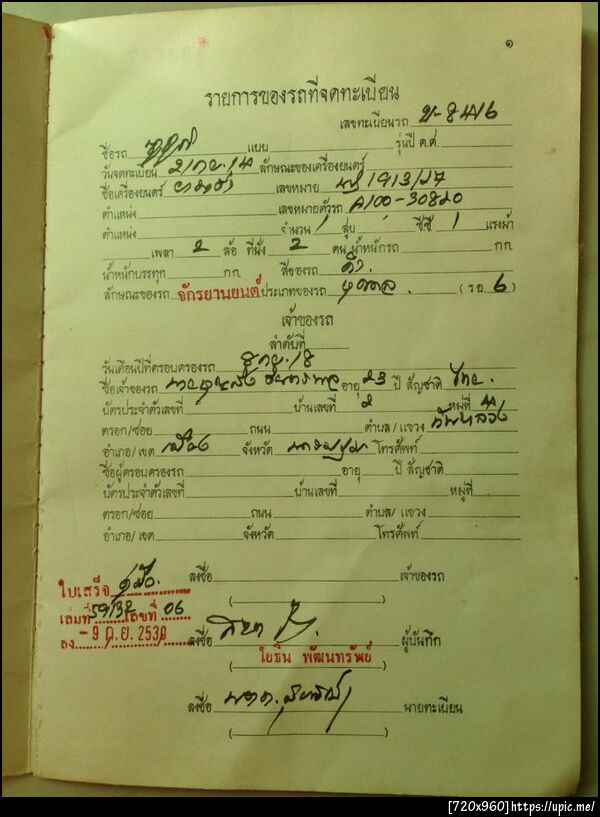 ๑
รายการของรถที่จดทะเบียน
เลขทะเบียนรถ
ชื่อรถ แบบ รุ่นปี ค.ศ.
วันจดทะเบียน ลักษณะของเครื่องยนตร์
ชื่อเครื่องยนตร์ ยามาฮ่า เลขหมาย 1913127
ตำแหน่ง เลขหมายตัวรถ A100-30820
ตำแหน่ง จำนวน 1 สูบ ซีซี 1 แรงม้า
เพลา 2 ล้อ ที่นั่ง 2 คน น้ำหนักรถ กก.
น้ำหนักบรรทุก กก. สีของรถ ดำ
ลักษณะของรถ จักรยานยนต์ ประเภทของรถ (รย. 6)
เจ้าของรถ
ลำดับที่
วันเดือนปีที่ครอบครองรถ
ชื่อเจ้าของรถ อายุ 23 ปี สัญชาติ ไทย
บัตรประจำตัวเลขที่ บ้านเลขที่ 2 หมู่ที่
ตรอก/ซอย ถนน ตำบล/แขวง
อำเภอ/เขต เมือง จังหวัด นครปฐม โทรศัพท์
ชื่อผู้ครอบครองรถ อายุ ปี สัญชาติ
บัตรประจำตัวเลขที่ บ้านเลขที่ หมู่ที่
ตรอก/ซอย ถนน ตำบล/แขวง
อำเภอ/เขต จังหวัด โทรศัพท์
ลงชื่อ เจ้าของรถ
( )
ใบเสร็จ
เล่มที่ เลขที่ 06
ลง - 9 ก.ย. 2530
ลงชื่อ ผู้บันทึก
( โยธิน พัฒนทรัพย์ )
ลงชื่อ นายทะเบียน
( )
[720x960]https://upic.me/